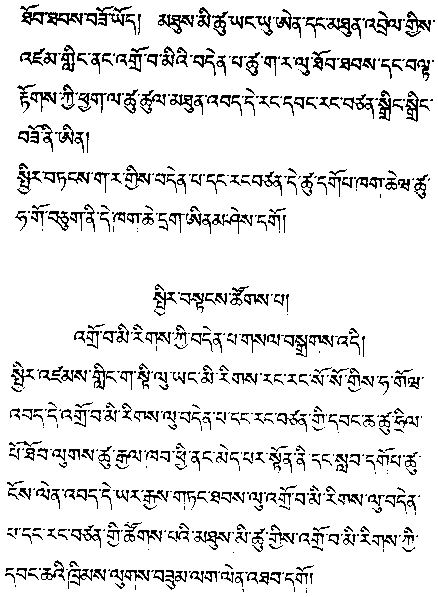 ཐོབ་ཐབས་བཟོ་ཡོད། མཐུས་མི་ཚུ་ཡང་ཡུ་ཨེན་དང་མཐུན་འབྲེལ་གྱིས་
འཛམ་གླིང་ནང་འགྲོ་བ་མིའི་བདེན་པ་ཚུ་ག་ར་ལུ་ཐོབ་ཐབས་དང་བལྟ་
རྟོགས་ཀྱི་ཕྱག་ལ་ཚུ་ཚུལ་མཐུན་འབད་དེ་རང་དབང་རང་བཙན་སྒྲིང་སྒྲིང་
བཟོ་ནི་ཨིན།
སྤྱིར་བཏངས་ག་ར་གྱིས་བདེན་པ་དང་རང་བཙན་དེ་ཚུ་དགོཔ་ཁག་ཆེཝ་ཚུ་
ཧ་གོ་བཅུག་ནི་དེ་ཁག་ཆེ་དྲག་ཨིནམ་ཤེས་དགོ།
སྤྱིར་བསྟངས་ཚོགས་པ།
འགྲོ་བ་མི་རིགས་ཀྱི་བདེན་པ་གསལ་བསྒྲགས་འདི།
སྤྱིར་འཛམས་གླིང་ག་སྟི་ལུ་ཡང་མི་རིགས་རང་རང་སོ་སོ་གྱིས་ཧ་གོཝ་
འབད་དེ་འགྲོ་བ་མི་རིགས་ལུ་བདེན་པ་དང་རང་བཙན་གྱི་དབང་ཆ་ཚུ་ཧྲིལ་
པོ་ཐོབ་ལུགས་ཚུ་རྒྱལ་ཁབ་ཕྱི་ནང་མེད་པར་སྟོན་ནི་དང་སླབ་དགོཔ་ཚུ་
ངོས་ལེན་འབད་དེ་ཡར་རྒྱས་གཏང་ཐབས་ལུ་འགྲོ་བ་མི་རིགས་ལུ་བདེན་
པ་དང་རང་བཙན་གྱི་ཚོགས་པའི་མཐུས་མི་ཚུ་གྱིས་འགྲོ་བ་མི་རིགས་ཀྱི་
དབང་ཆའི་ཁྲིམས་ལུགས་བཟུམ་ལག་ལེན་འཐབ་དགོ།